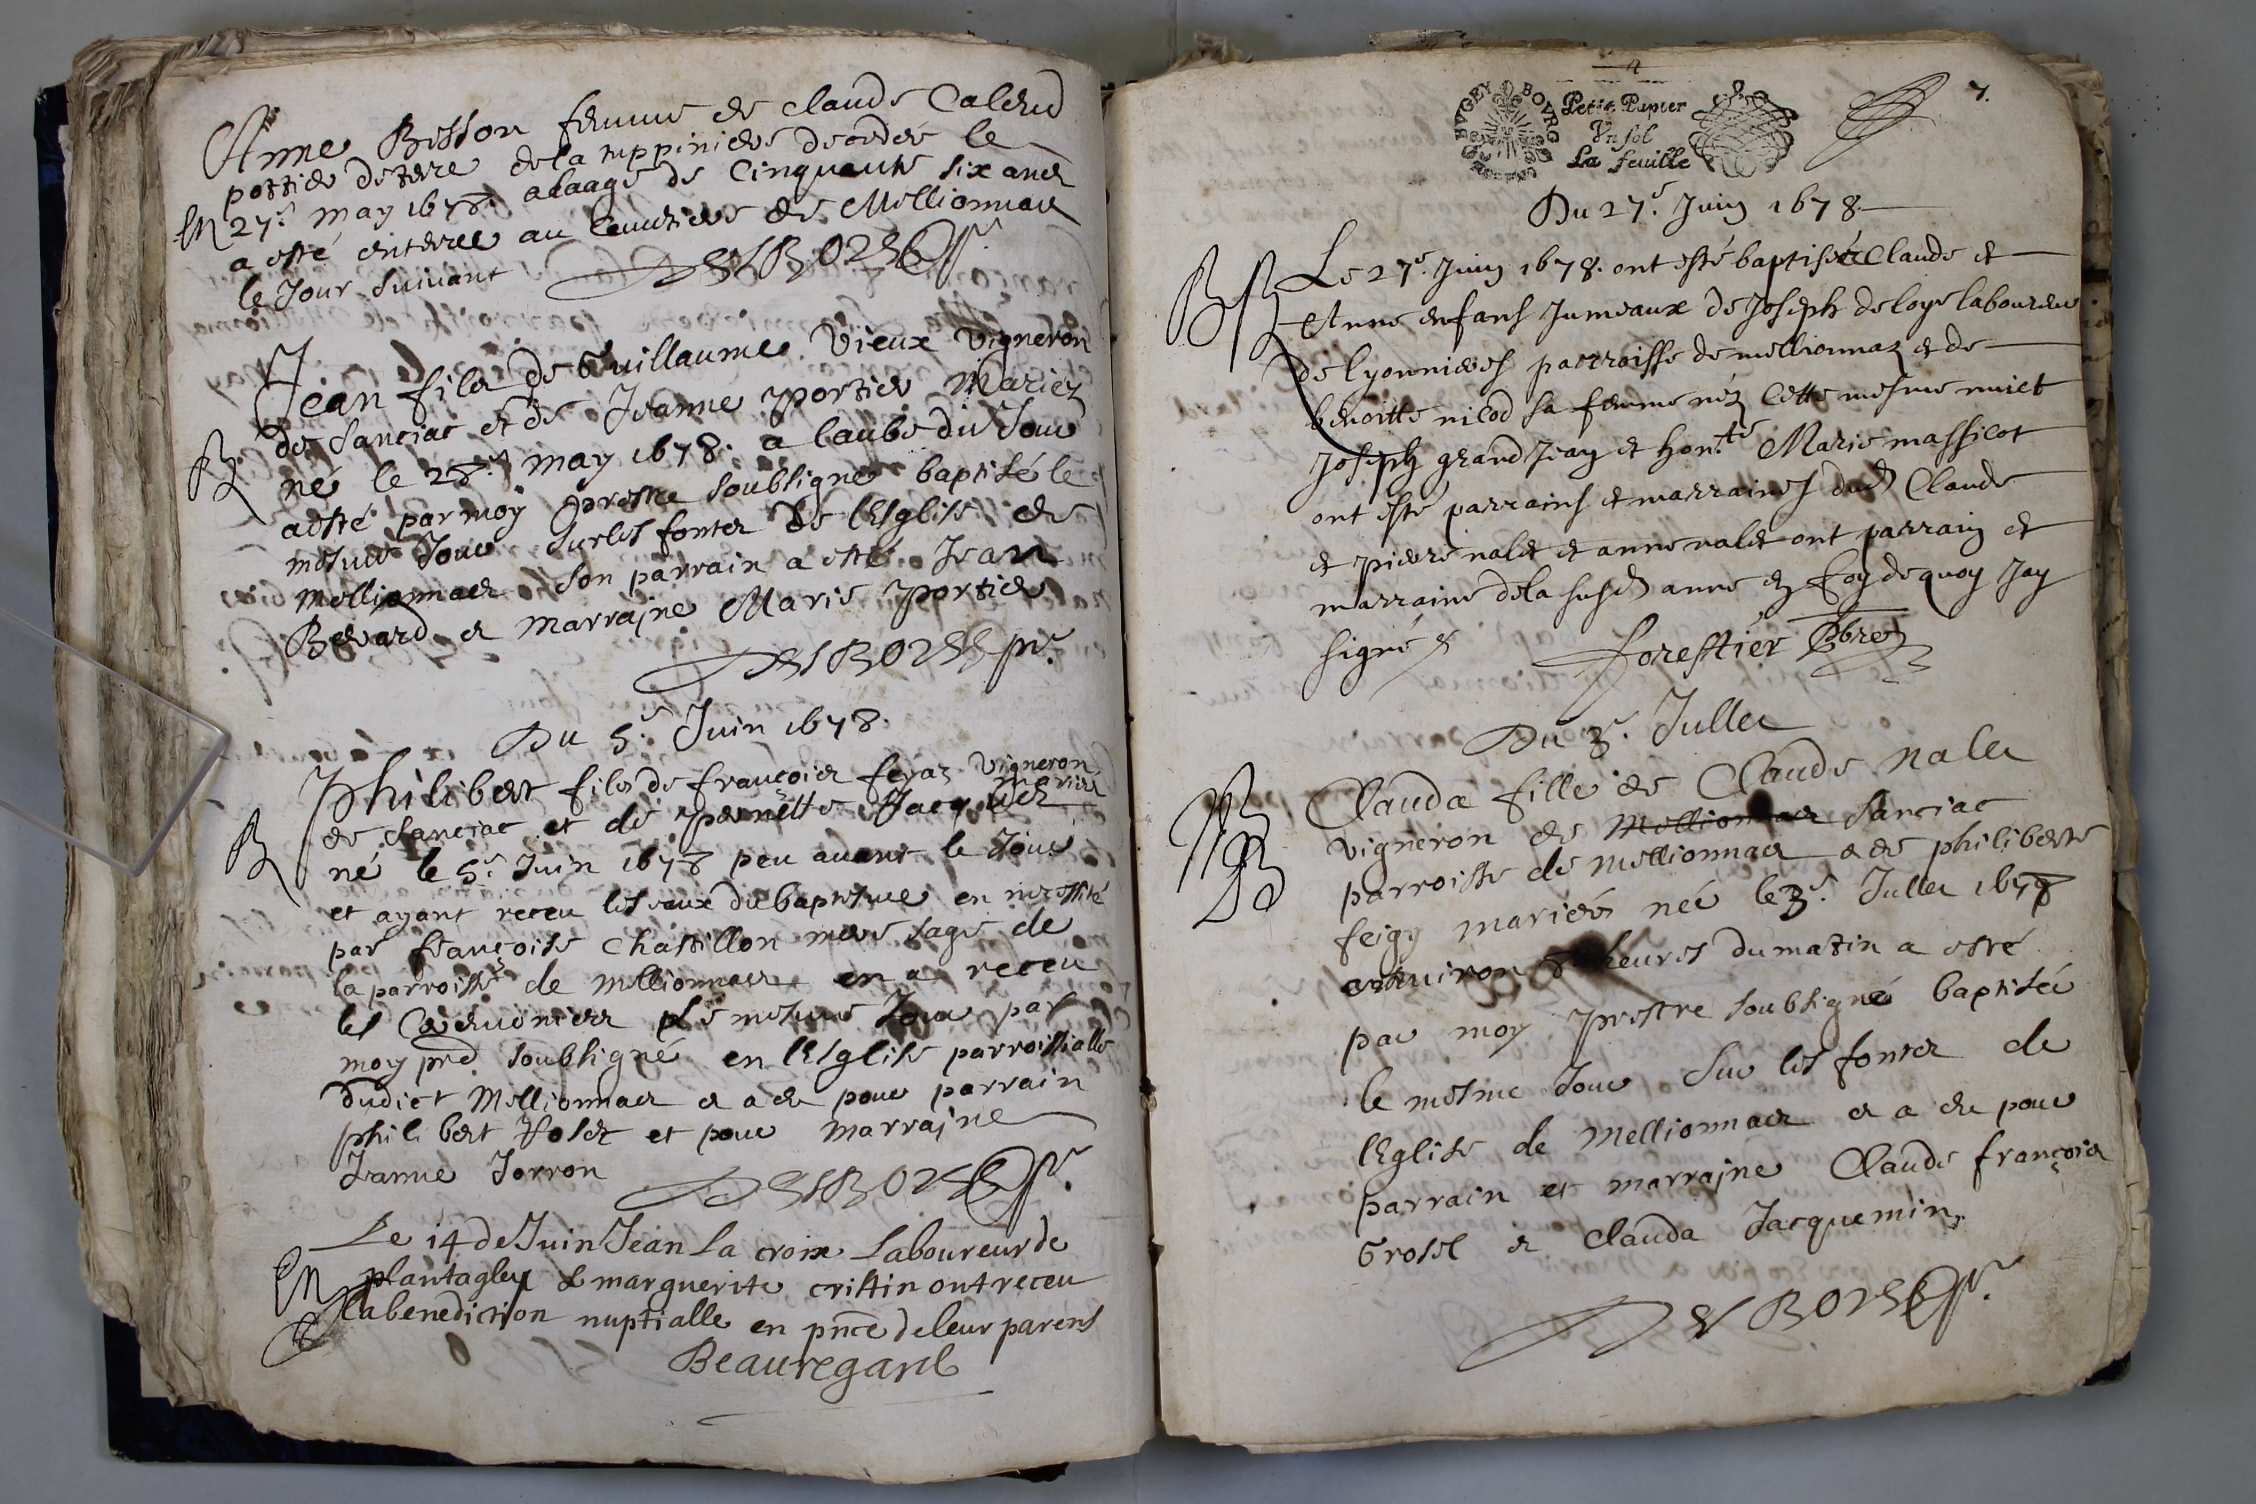 Anne Bresson femme de Claude Caloud
pottier de terre de la tuppiniere decedeé le
En 27e. may 1678. a laage de Cinquante six ans
a esté enterree au Cemetiere de Mellionnas
le Jour suivant DESBORDES ptre.
Jean fils de Guillaume Vieux Vigneron
de sanciat et de Jeanne portier Mariez
B né le 28e. may 1678. a laube du Jour
a esté par moy prestre soubsigné baptisé le
mesme Jour sur les fonts de lEsglise de
Mellionnas son parrain a esté Jean
Berard et marraine Marie portier
DESBORDES ptre.
Du 5e. Juin 1678.
philibert fils de françois feraz vigneron
de sanciat et de pernette Jacquet mariez
B né le 5e. Juin 1678 peu avant le Jour
et ayant receu les eaux du baptesme en necessité
par françoise Chastillon mere sage de
la parroisse de Mellionnas en a receu
les Ceremonies le mesme Jour par
moy pred soubsigné en lEsglise parroissialle
dudict Mellionnas et a eu pour parrain
philibert et pour marraine
Jeanne Jorron DESBORDES ptre.
Le 14 de Juin Jean La croix Laboureur de
plantagley & marguerite cristin ont receu
la benediction nuptialle en pñce de leur parens
Beauregard
7.
BVGEY BOVRG
Petit Papier
Vn sol
La feuille
Du 27e. Juin 1678.
BB Le 27e. Juin 1678. ont esté baptisés Claude et
Anne enfans Jumeaux de Joseph deloye laboureur
de lyonnieres parroisse de mellionnaz et de
benoitte nicod sa femme néz cette mesme nuict
Joseph grand Jean et hon.te Marie massicot
ont esté parrains et marraines dud Claude
et pierre nalet et anne nalet ont parrain et
marraine de la susd anne en foy de quoy Jay
signé forestier Pbre
Du 3e. Jullet
Clauda fille de Claude nalet
vigneron de Mellionnas sanciat
parroisse de Mellionnas et de philiberte
feigy mariés née le 3e. Jullet 1678
environ heures du matin a esté
par moy prestre soubsigné baptiséé
le mesme Jour sur les fonts de
lEglise de Mellionnas et a eu pour
parrain et marraine Claude françois
Grosel et Clauda Jacquemin.
DESBORDES ptre.